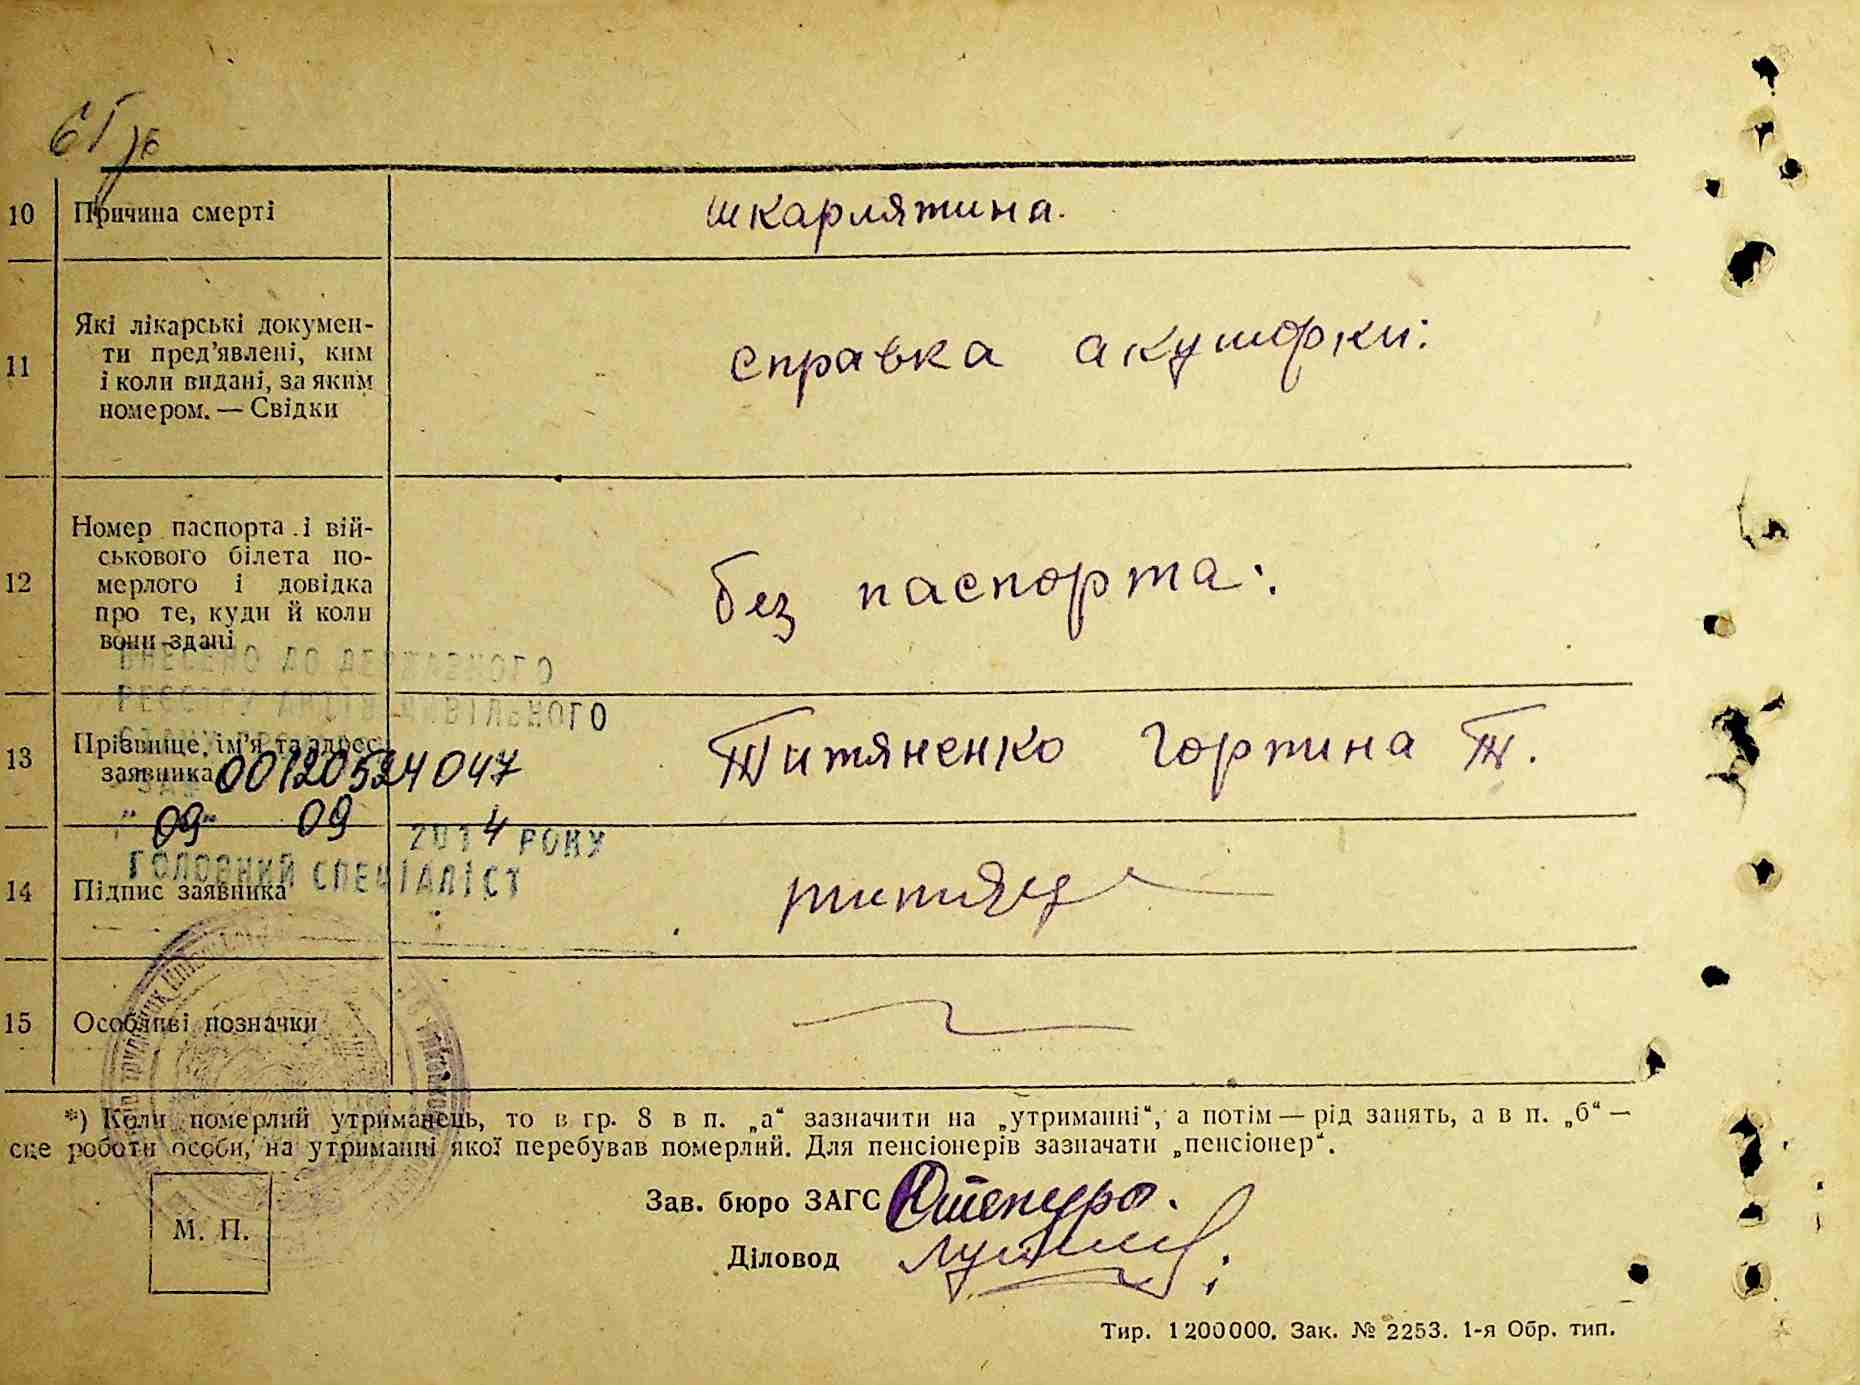 10 Причина смерті шкарлятина.
11 Які лікарські докумен-
ти пред’явлені, ким
і коли видані, за яким
номером. — Свідки
справка акушорки:
12 Номер паспорта і вій-
ськового білета по-
мерлого і довідка
про те, куди й коли
вони здані
без паспорта:
ВНЕСЕНО ДО ДЕРЖАВНОГО
РЕЄСТРУ АКТІВ ЦИВІЛЬНОГО
13 Прізвище, ім’я та адрес
заявника
Титяненко Горпина Т.
00120524047
"09" 09 2014 РОКУ
ГОЛОВНИЙ СПЕЦІАЛІСТ
14 Підпис заявника
15 Особливі позначки
*) Коли померлий утриманець, то в гр. 8 в п. „а“ зазначити на „утриманні“, а потім — рід занять, а в п. „б“ —
сце роботи особи, на утриманні якої перебував померлий. Для пенсіонерів зазначати „пенсіонер“.
Зав. бюро ЗАГС
Діловод
М. П.
Тир. 1200000. Зак. № 2253. 1-я Обр. тип.